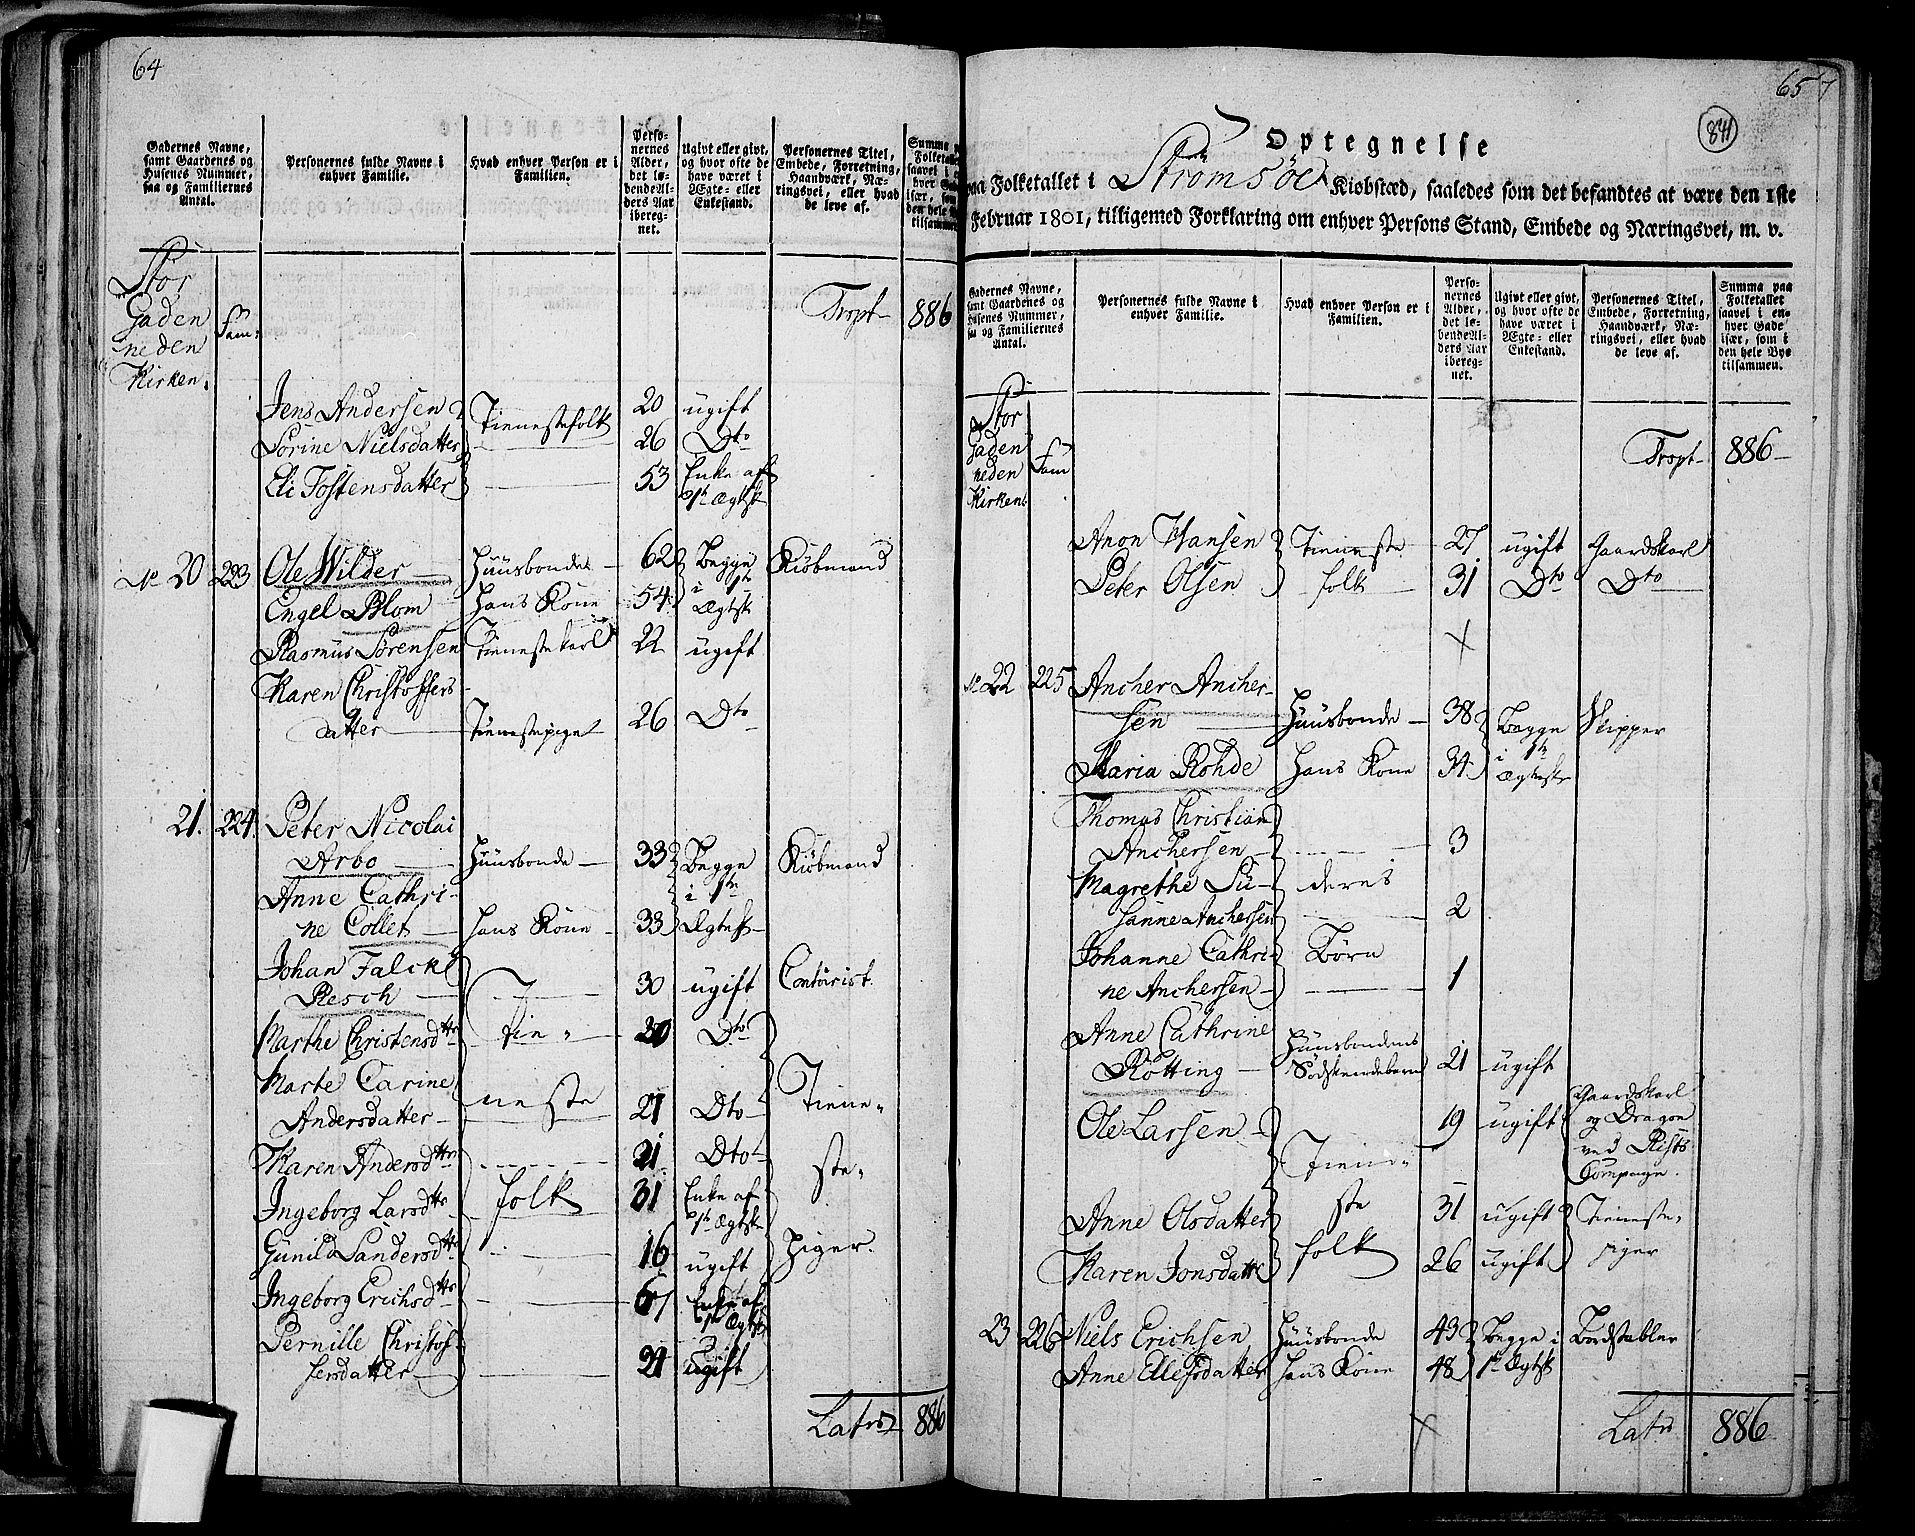 64
Gadernes Navne, samt Gaardenes og Husenes Nummer, saa og Familiernes Antal.
Personernes fulde Navne i enhver Familie.
Hvad enhver Person er i Familien.
Personernes Alder, det løbende Alders Aar iberegnet.
Ugivt eller givt, og hvor ofte de have været i Ægte- eller Enkestand.
Personernes Titel, Embede, Forretning, Haandværk, Næringsvei, eller hvad de leve af.
Stor
Gaden
neden
Kirken.
Fam:
Trspt 886
Jens Andersen Tienestefolk 20 ugift
Sørine Nielsdatter 26 Dto
Eli Tostensdatter 53 Enke af 1ste Ægtsk
No 20 223 Ole Wilder Huusbonde 62 Begge i 1ste Ægtsk Kiøbmand
Engel Blom Hans Kone 54
Rasmus Sørensen Tienestekarl 22 ugift
Karen Christoffers
datter Tienestepige 26 Dto
21. 224. Peter Nicolai
Arbo Huusbonde 33 Begge i 1ste Kiøbmand
Anne Cathri-
ne Collet Hans Kone 33 Ægtesk
Johan Falck
Resch 30 ugift Contorist.
Marthe Christensdtr tie- 20 Dto
Marte Carine
Andersdatter neste 27 Dto Tiene-
Karen Andersdtr 21 Dto
Ingeborg Larsdtr folk 31 Enke af 1ste Ægtsk ste-
Gunild Sandersdtr 16 ugift piger.
Ingeborg Erichsdtr 67 Enke af 1ste Ægtsk
Pernille Christof-
fersdatter 21 ugift
Latus 886
657
841
Optegnelse
paa Folketallet i Strømsøe Kiøbstæd, saaledes som det befandtes at være den 1ste
Februar 1801, tilligemed Forklaring om enhver Persons Stand, Embede og Næringsvei, m. v.
Gadernes Navne, samt Gaardenes og Husenes Nummer, saa og Familiernes Antal.
Personernes fulde Navne i enhver Familie.
Hvad enhver Person er i Familien.
Personernes Alder, det løbende Alders Aar iberegnet.
Ugivt eller givt, og hvor ofte de have været i Ægte- eller Enkestand.
Personernes Titel, Embede, Forretning, Haandværk, Næringsvei, eller hvad de leve af.
Summa paa Folketallet saavel i enhver Gade især, som i den hele Bye tilsammen.
Stor
Gaden
neden
Kirken
Fam
Trspt 886
Anon Hansen Tieneste 27 ugift Gaardskarl
Peter Olsen folk 31 Dto Dto
No 22 225 Ancher Ancher-
sen Huusbonde 38 Begge i 1ste Ægteskr Skipper
Maria Rohde Hans Kone 34
Thomas Christian
Anchersen 3
Magrethe Su- deres
sanne Anchersen 2
Johanne Cathri- Børn
ne Anchersen 1
Anne Cathrine Huusbondens
Røtting Sødskendebarn 21 ugift
Ole Larsen 19 ugift Gaardskarl
og Dragon
ved Rists
Compagne.
Tiene-
Anne Olsdatter ste 31 ugift Tieneste-
Karen Jonsdatter folk 26 ugift piger
23 226 Niels Erichsen Huusbonde 43 Begge i Bordstabler
Anne Ellefsdatter Hans Kone 48 1te Ægtsk
Latus 886